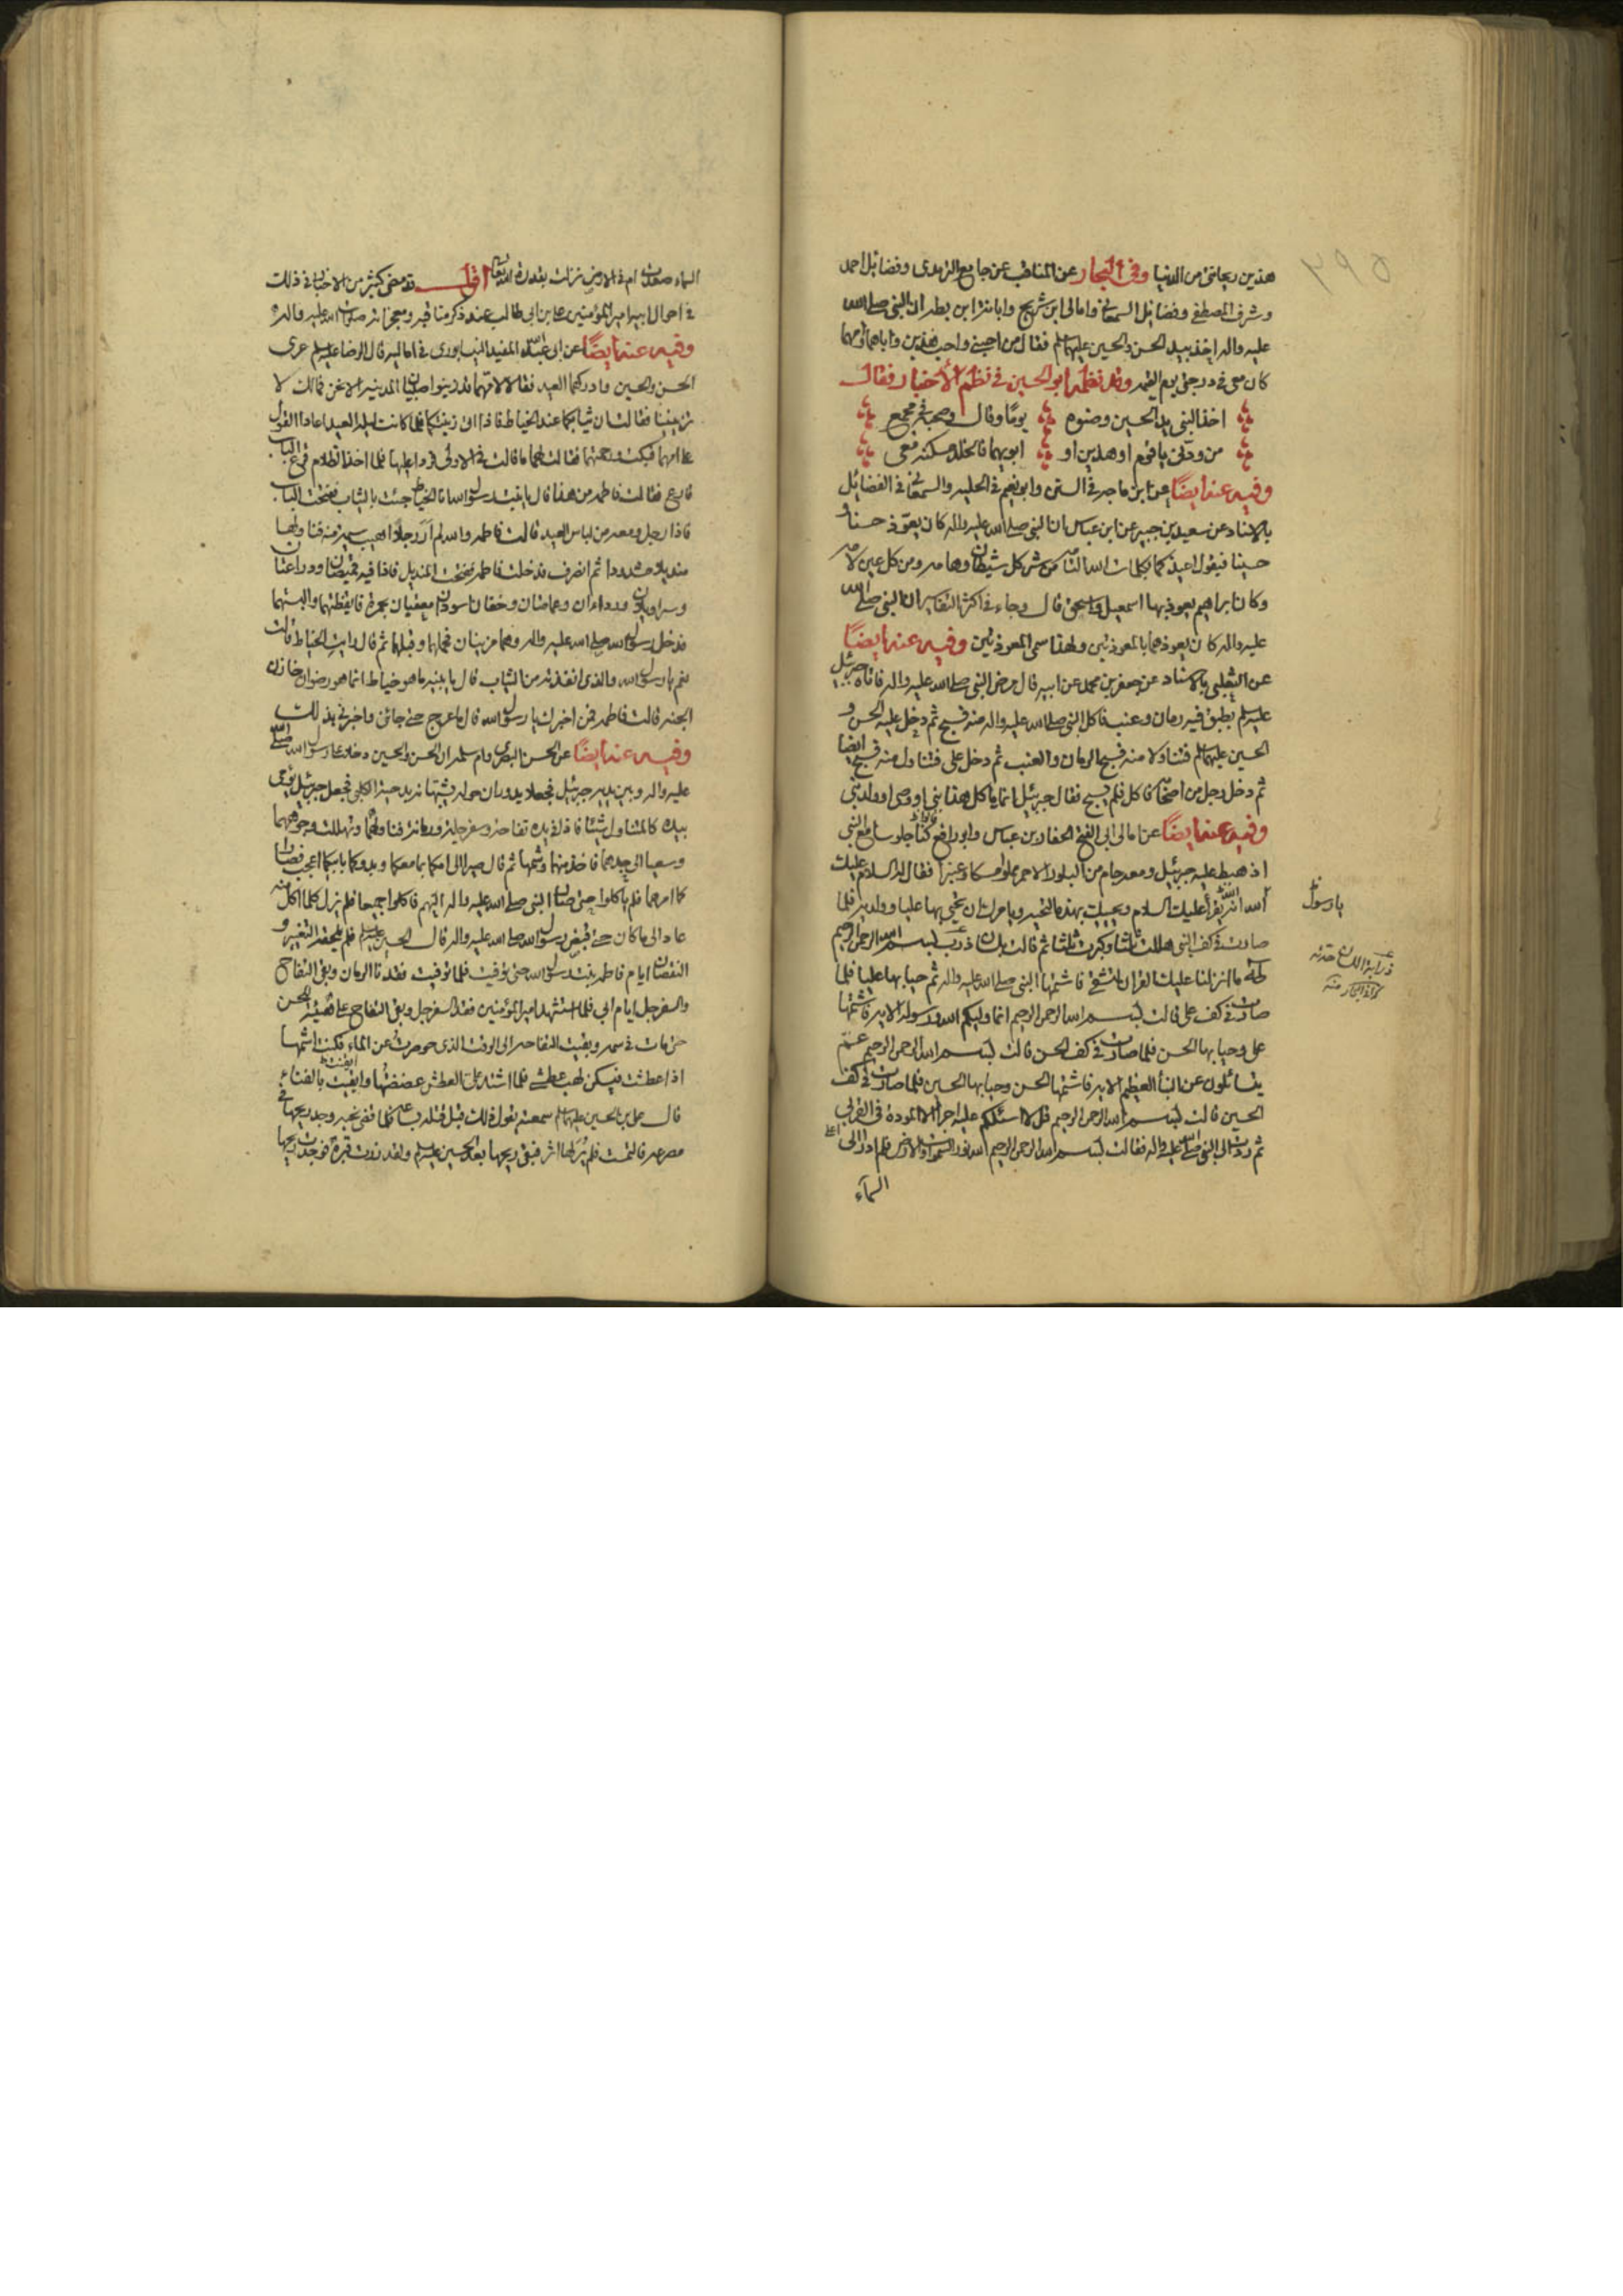 ٣٩٥
هذين ريحانتي من الدنيا وفي البحار عن المناقب عن جامع الترمذي وفضائل احمد
وشرف المصطفى وفضائل السمعاني وامالي ابن شريح وابانة ابن بطه ان النبي صلى الله
عليه واله اخذ بيد الحسن والحسين عليهما السلم فقال من احبني واحب هذين واباهما وامهما
كان معي في درجتي يوم القيمه وقد نظمه ابو الحسين في نظم الأخبار فقال
اخذ النبي يد الحسين وصنوه يومًا وقال وصحبه في مجمع
من ودّني يا قوم او هذين او ابويهما فالخلد مسكنه معي
وفيه عنه ايضًا عن ابن ماجه في السنن وابو نعيم في الحليه والسمعاني في الفضائل
بالاسناد عن سعيد بن جبير عن ابن عباس ان النبي صلى الله عليه واله كان يعوّذ حسنا و
حسينا فيقول اعيذكما بكلمات الله التامه من شر كل شيطان وهامه ومن كل عين لامه
وكان ابراهيم يعوذ بها اسمعيل واسحق قال وجاء في اكثر التفاسير ان النبي صلى الله
عليه واله كان يعوذهما بالمعوذتين ولهذا سمى المعوذتين وفيه عنه ايضًا
عن الثعلبي بالاسناد عن جعفر بن محمد عن ابيه قال مرض النبي صلى الله عليه واله فاتاه جبرئيل
عليه السلم بطبق فيه رمان وعنب فاكل النبي صلى الله عليه واله منه فسبح ثم دخل عليه الحسن و
الحسين عليهما السلم فتناولا منه فسبح الرمان والعنب ثم دخل علي فتناول منه فسبح ايضا
ثم دخل رجل من اصحابه فاكل فلم يسبح فقال جبرئيل انما ياكل هذا نبي او وصي او ولد نبي
وفيه عنه ايضًا عن امالي ابي الفتح الحفار بن عباس وابو رافع كنا جلوسا مع النبي
اذ هبط عليه جبرئيل ومعه جام من البلور الاحمر مملوا مسكا وعنبرا فقال له السلام عليك
الله يقرأ عليك السلام ويحييك بهذه التحيه ويامرك ان تحيي بها عليا وولديه فلما
يا رسول
صارت في كف النبي هللت ثلثا وكبرت ثلثا ثم قالت بلسان ذرب بسم الله الرحمن الرحيم
طه ما انزلنا عليك القران لتشقى فاشتمها النبي صلى الله عليه واله ثم حيا بها عليا فلما
صارت في كف علي قالت بسم الله الرحمن الرحيم انما وليكم الله ورسوله الايه فاشتمها
علي وحيا بها الحسن فلما صارت في كف الحسن قالت بسم الله الرحمن الرحيم عمّ
يتسائلون عن النبأ العظيم الايه فاشتمها الحسن وحيا بها الحسين فلما صارت في كف
الحسين قالت بسم الله الرحمن الرحيم قل لا اسئلكم عليه اجرا الا المودة في القربى
ثم ردت الى النبي صلى الله عليه واله فقالت بسم الله الرحمن الرحيم الله نور السموات والارض فلم ادر الى
السماء
السماء صعدت ام في الارض نزلت بقدرة الله تعالى اقول قد مضى كثير من الاخبار في ذلك
في احوال ابيه امير المؤمنين علي بن ابي طالب عند ذكر مناقبه ومعجزاته صلوات الله عليه واله
وفيه عنه ايضًا عن ابي عبد الله المفيد النيسابوري في اماليه قال الرضا عليه السلم عرى
الحسن والحسين وادركهما العيد فقالا لامهما قد زينوا صبيان المدينه الا نحن فمالك لا
تزينينا فقالت ان ثيابكما عند الخياط فاذا اتى زينتكما فلما كانت ليله العيد اعادا القول
على امهما فبكت ورحمتهما فقالت لهما ما قالت في الاولى فردا عليها فلما اخذ الظلام قرع الباب
قارع فقالت فاطمه من هذا قال يا بنت رسول الله انا الخياط جئت بالثياب ففتحت الباب
فاذا رجل ومعه من لباس العيد قالت فاطمه والله لم ار رجلا اهيب سيمة منه فناولها
منديلا مشدودا ثم انصرف فدخلت فاطمه ففتحت المنديل فاذا فيه قميصان ودراعتان
وسراويلان ورداءان وعمامتان وخفان اسودان معقبان بحمرة فايقظتهما والبستهما
فدخل رسول الله صلى الله عليه واله وهما مزينان فحملهما وقبلهما ثم قال رايت الخياط قالت
نعم يا رسول الله والذي انفذته من الثياب قال يا بنيه ما هو خياط انما هو رضوان خازن
الجنه قالت فاطمه فمن اخبرك يا رسول الله قال ما عرج حتى جائني واخبرني بذلك
وفيه عنه ايضًا عن الحسن البصري وام سلمه ان الحسن والحسين دخلا على رسول الله صلى الله
عليه واله وبين يديه جبرئيل فجعلا يدوران حوله يشبهانه بدحية الكلبي فجعل جبرئيل يومي
بيده كالمتناول شيئا فاذا في يده تفاحة وسفرجلة ورمانة فناولهما وتهللت وجوههما
وسعيا الى جدهما فاخذ منهما وشمها ثم قال صيرا الى امكما بما معكما وبدوكما بابيكما اعجب فصارا
كما امرهما فلم ياكلوا حتى صار النبي صلى الله عليه واله اليهم فاكلوا جميعا فلم يزل كلما اكل منه
عاد الى ما كان حتى قبض رسول الله صلى الله عليه واله قال الحسين عليه السلم فلم يلحقه التغيير و
النقصان ايام فاطمه بنت رسول الله حتى توفيت فلما توفيت فقدنا الرمان وبقي التفاح
والسفرجل ايام ابي فلما استشهد امير المؤمنين فقد السفرجل وبقي التفاح على هيئته للحسن
حتى مات في سمه وبقيت التفاحه الى الوقت الذي حوصرت عن الماء فكنت اشمها
اذا عطشت فيسكن لهب عطشي فلما اشتد علي العطش عضضتها وايقنت بالفناء
قال علي بن الحسين عليهما السلم سمعته يقول ذلك قبل قتله بساعة فلما قضى نحبه وجد ريحها في
مصرعه فالتمست فلم ير لها اثر فبقى ريحها بعد الحسين عليه السلم ولقد زرت قبره فوجدت ريحها